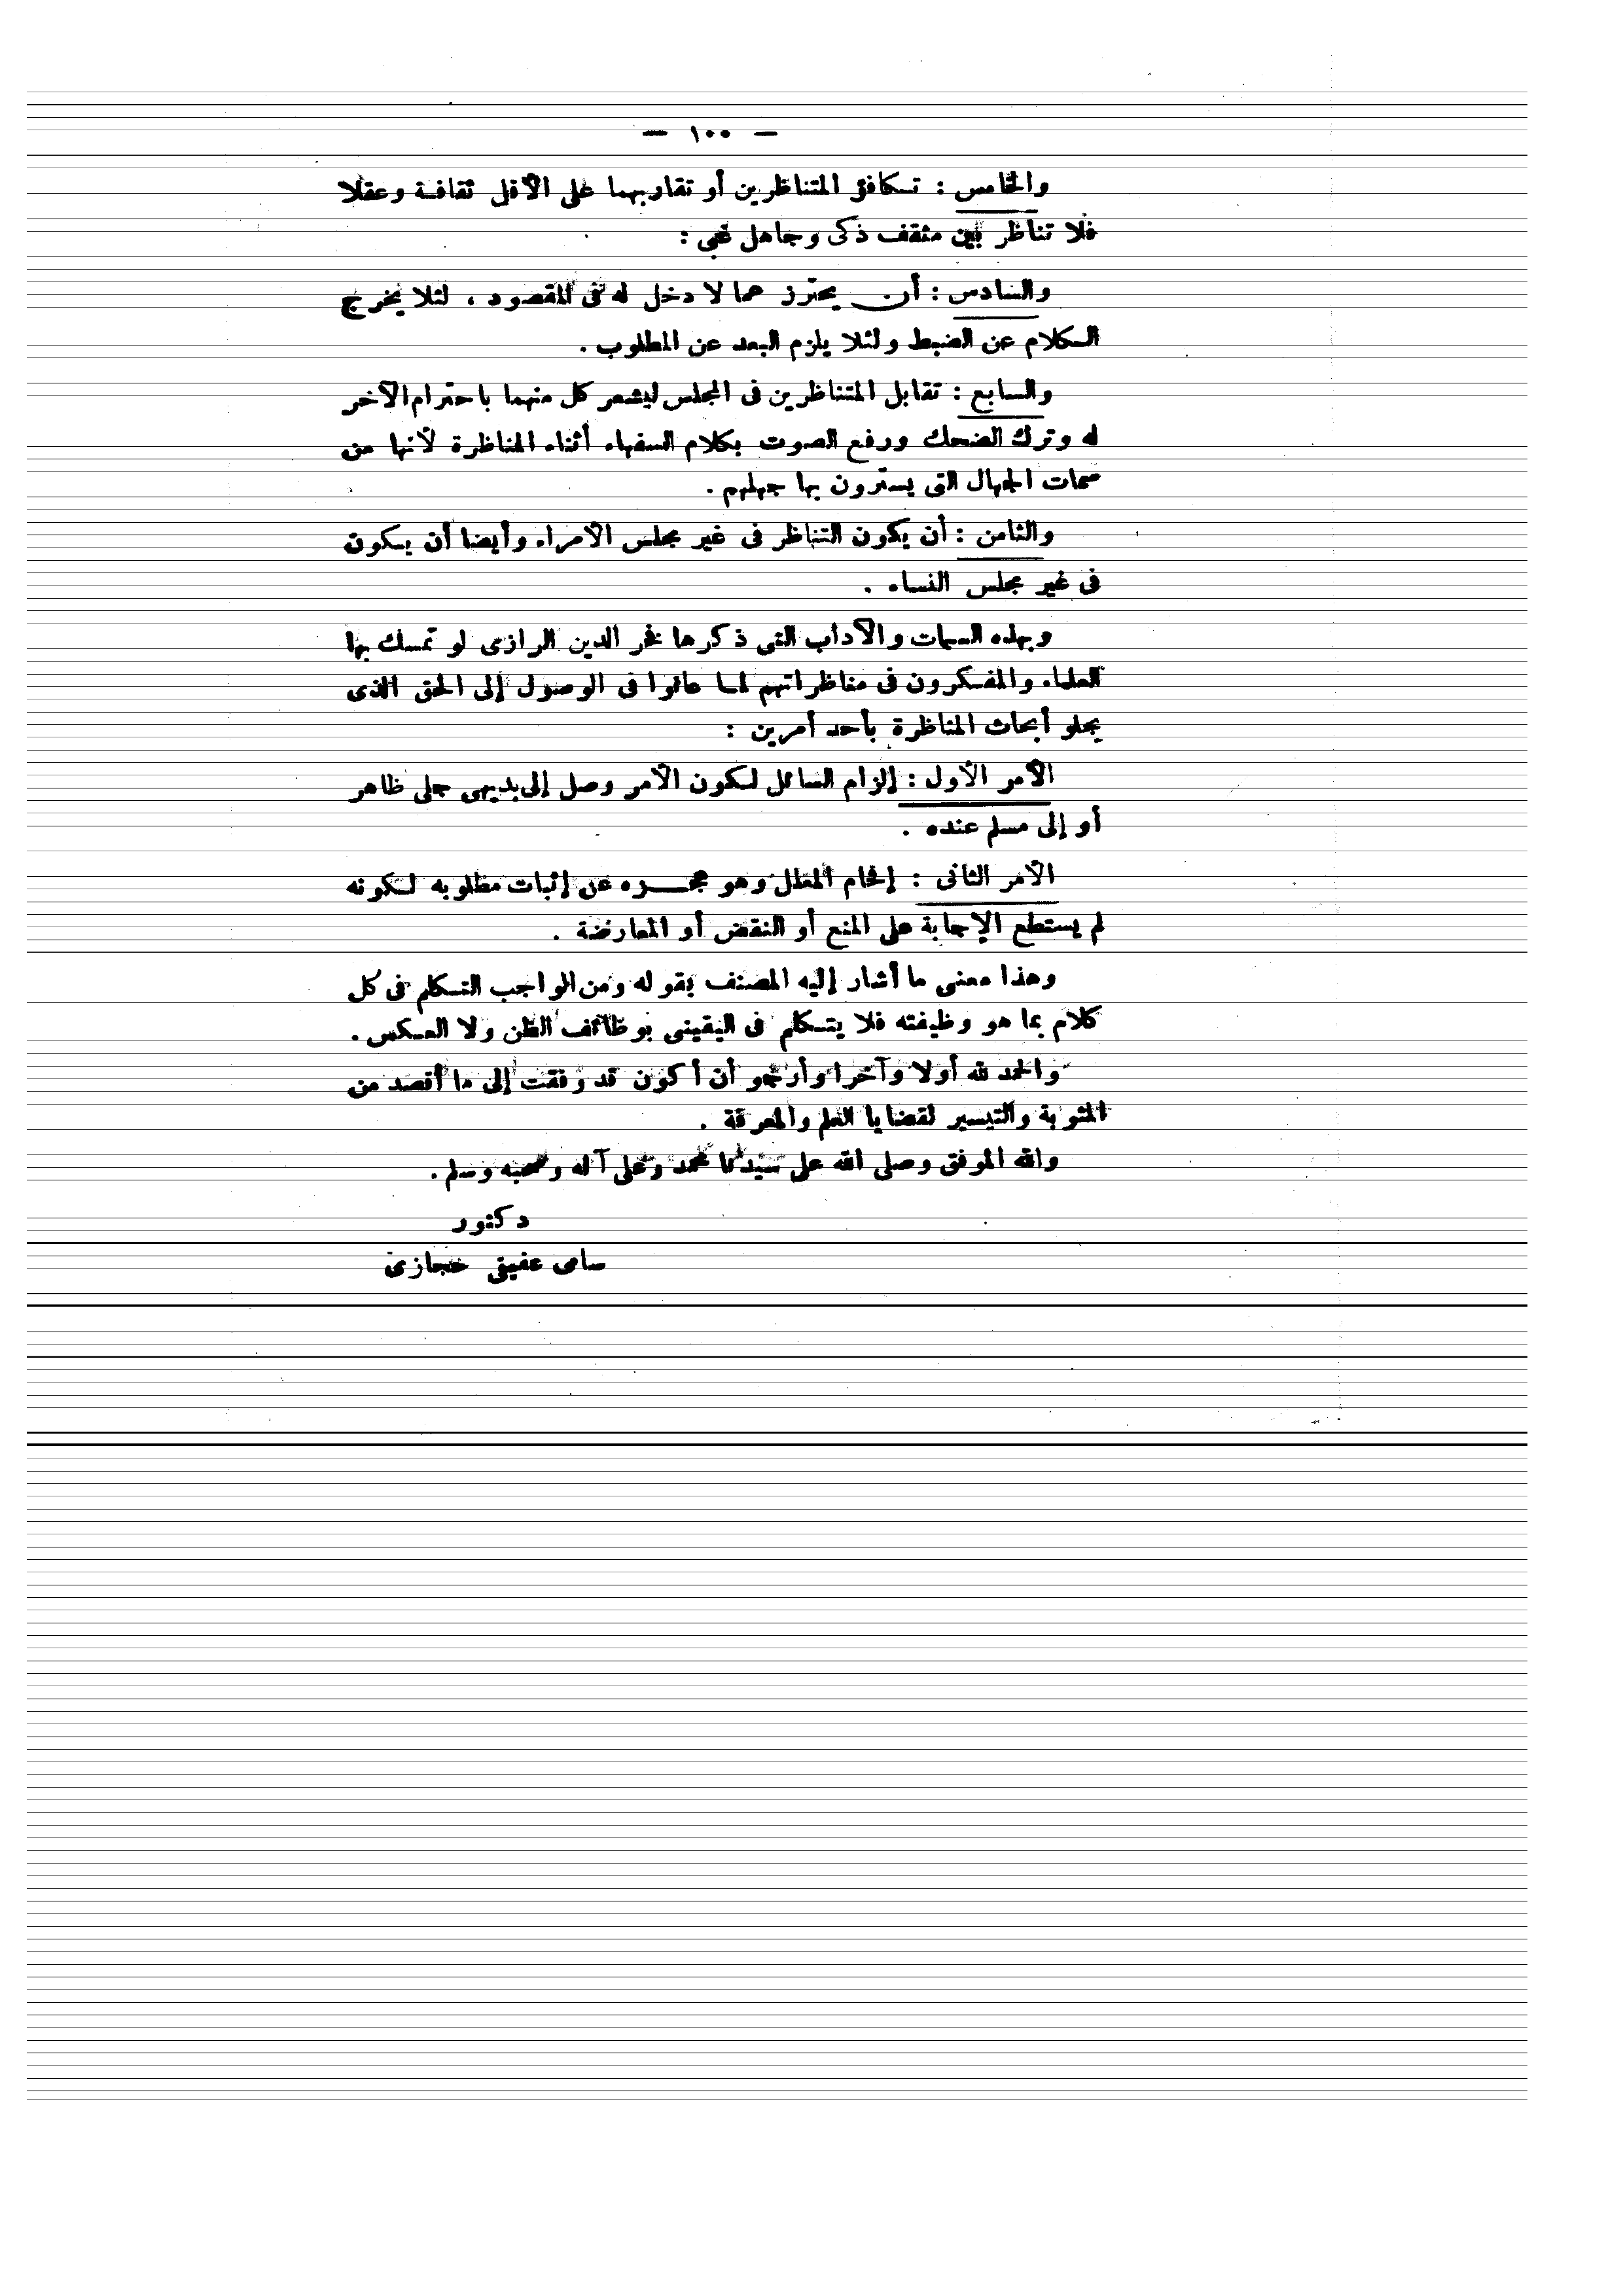 — ١٠٠ —
والخامس : تكافؤ المتناظرين أو تقاربهما على الأقل ثقافة وعقلا
فلا تناظر بين مثقف ذكى وجاهل غبى :
والسادس : أن يحترز عما لا دخل له فى المقصود ، لئلا يخرج
الكلام عن الضبط ولئلا يلزم البعد عن المطلوب .
والسابع : تقابل المتناظرين فى المجلس ليشعر كل منهما باحترام الآخر
له وترك الضحك ورفع الصوت بكلام السفهاء أثناء المناظرة لأنها من
سمات الجهال التى يسترون بها جهلهم .
والثامن : أن يكون التناظر فى غير مجلس الأمراء وأيضا أن يكون
فى غير مجلس النساء .
وبهذه السمات والآداب التى ذكرها فخر الدين الرازى لو تمسك بها
العلماء والمفكرون فى مناظراتهم لما عانوا فى الوصول إلى الحق الذى
يجلو أبحاث المناظرة بأحد أمرين :
الأمر الأول : إلزام السائل لكون الأمر وصل إلى بديهى جلى ظاهر
أو إلى مسلم عنده .
الأمر الثانى : إفحام المعلل وهو عجزه عن إثبات مطلوبه لكونه
لم يستطع الإجابة على المنع أو النقض أو المعارضة .
وهذا معنى ما أشار إليه المصنف بقوله ومن الواجب التكلم فى كل
كلام بما هو وظيفته فلا يتكلم فى اليقينى بوظائف الظن ولا العكس .
والحمد لله أولا وآخرا وأرجو أن أكون قد وفقت إلى ما أقصد من
المثوبة والتيسير لقضايا العلم والمعرفة .
والله الموفق وصلى الله على سيدنا محمد وعلى آله وصحبه وسلم .
دكتور
سامى عفيفى حجازى